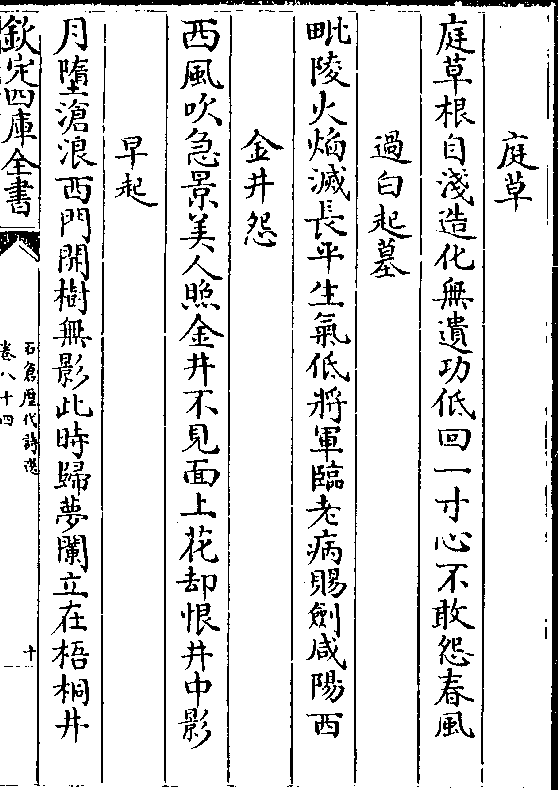 庭草
庭草根自淺造化無遺功低回一寸心不敢怨春風
過白起墓
毗陵火焰滅長平生氣低將軍臨老病賜劍咸陽西
金井怨
西風吹急景美人照金井不見面上花却恨井中影
早起
月墮滄浪西門開樹無影此時歸夢闌立在梧桐井
欽定四庫全書
石倉歷代詩選
卷八十四
十